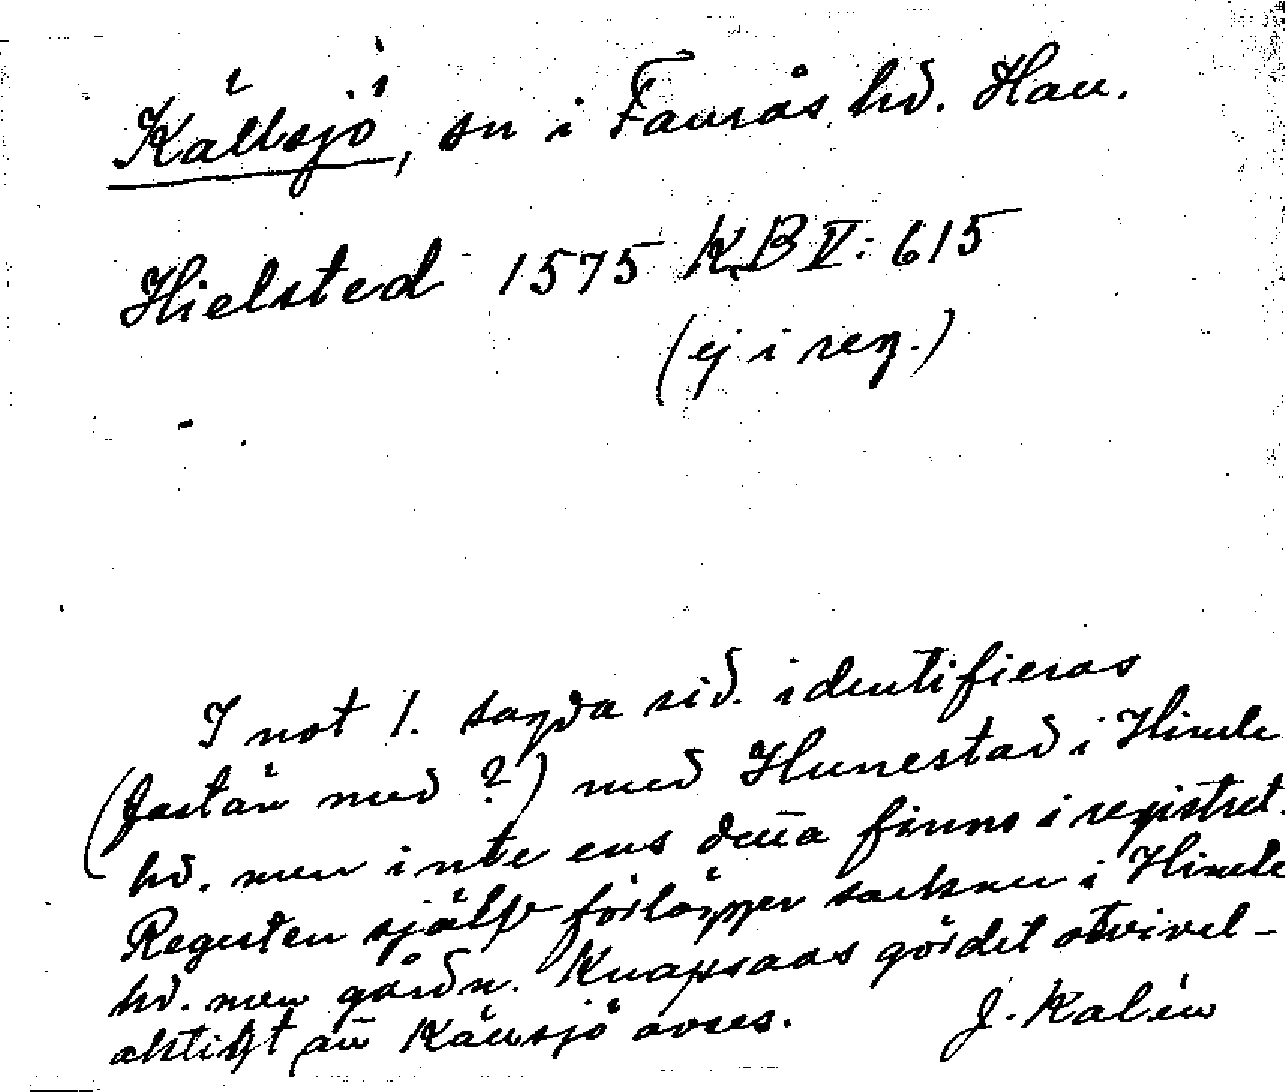 Källsjö, sn i Faurås hd. Hall.
Hielsted 1575 KB V: 615
(ej i reg.)
I not 1. sagda sid. identifieras
(fastän med ?) med Hunestad i Himle
hd. men inte ens detta finns i registret.
Regesten själf förlägger socknen i Himle
hd. men gårdn. Knapsaas gördet otvivel-
aktigt att Källsjö avses.
J. Kalén